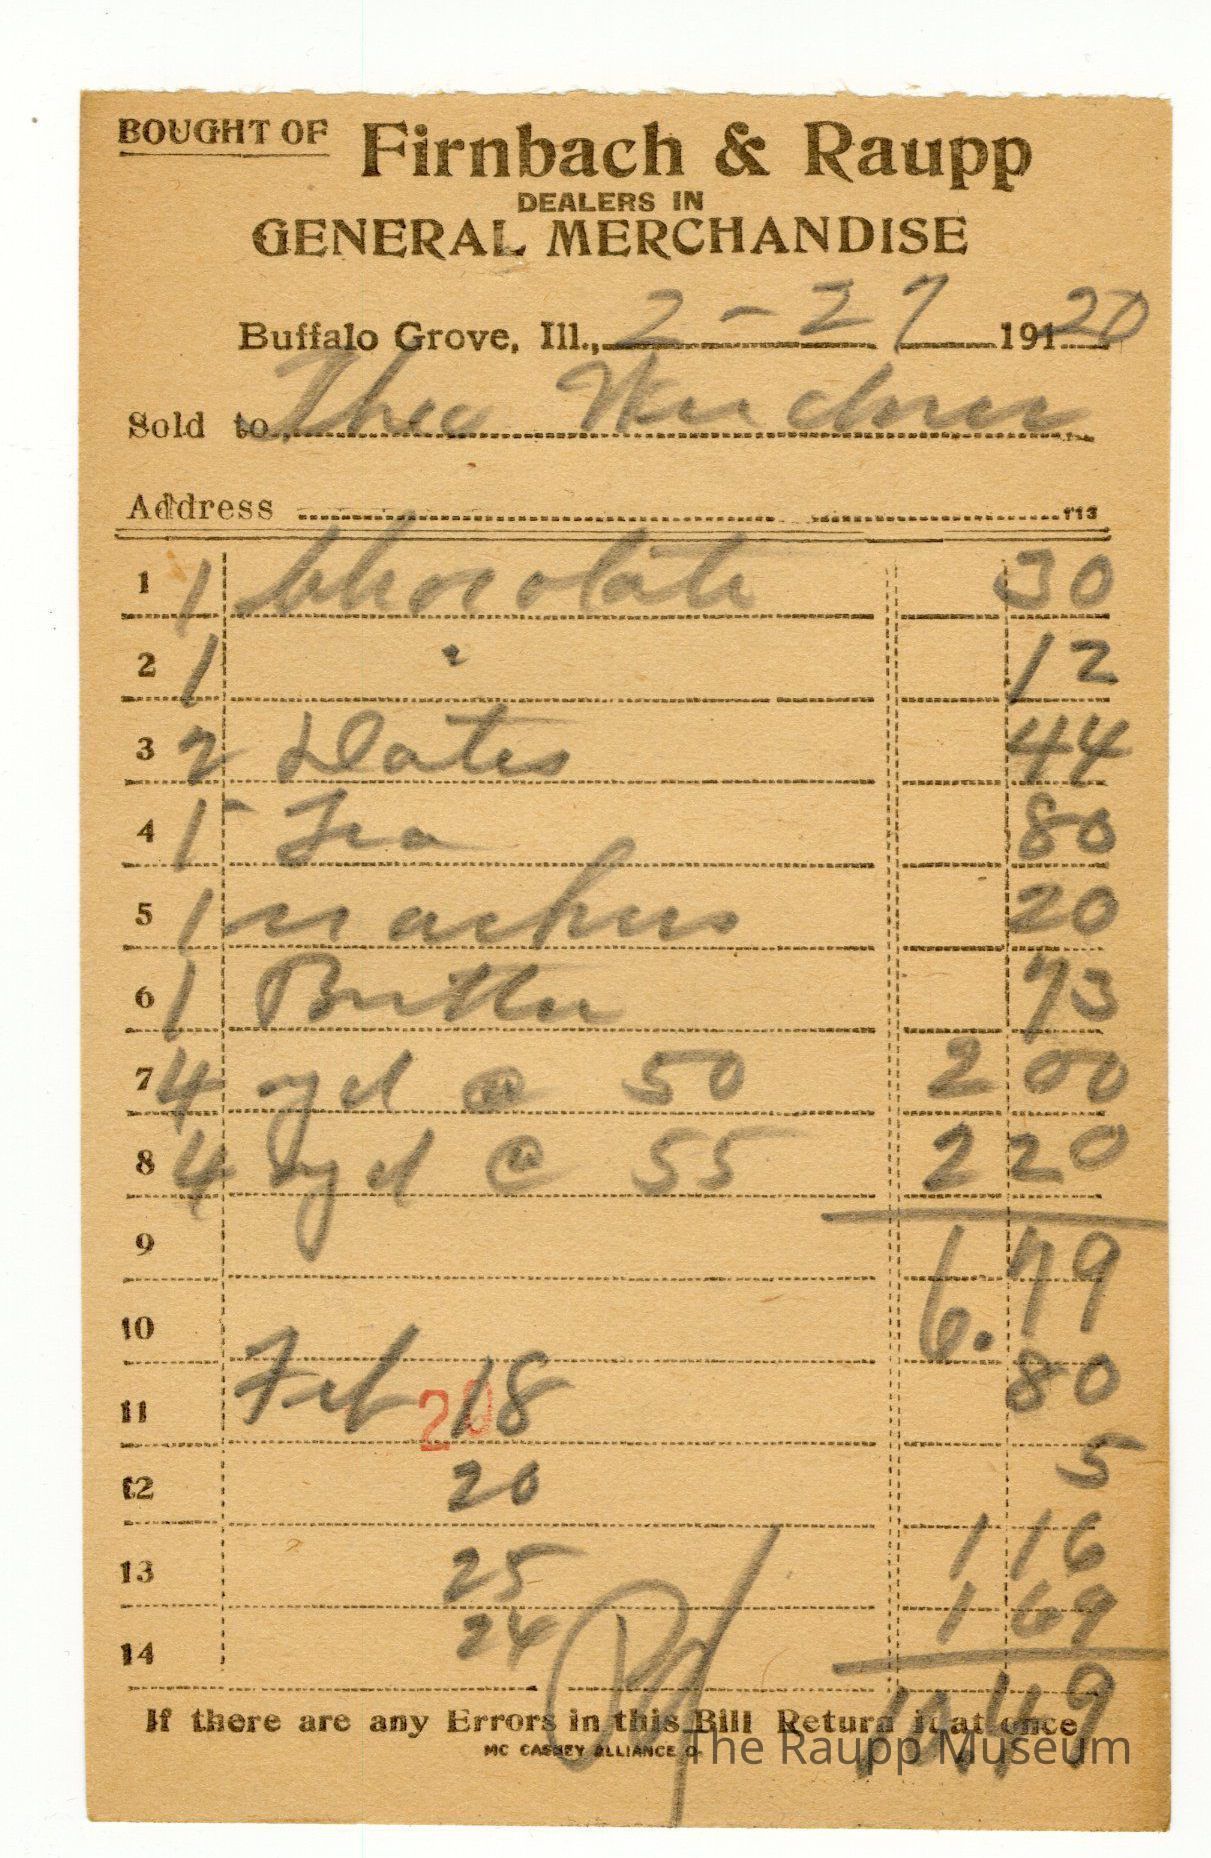 BOUGHT OF Firnbach & Raupp
DEALERS IN
GENERAL MERCHANDISE
Buffalo Grove, Ill., 2 - 27 191 20
Sold to Theo
Address 113
1 1 Chocolate 30
2 1 " 12
3 2 Dates 44
4 1 Tea 80
5 1 20
6 1 Butter 73
7 4 yd @ 50 2 00
8 4 yd @ 55 2 20
9 6.79
10
11 Feb 18 20 80
12 20 5
13 25 1 16
14 24 1 69
Pd 10 49
If there are any Errors in this Bill Return it at once
MC CASKEY ALLIANCE O.
The Raupp Museum